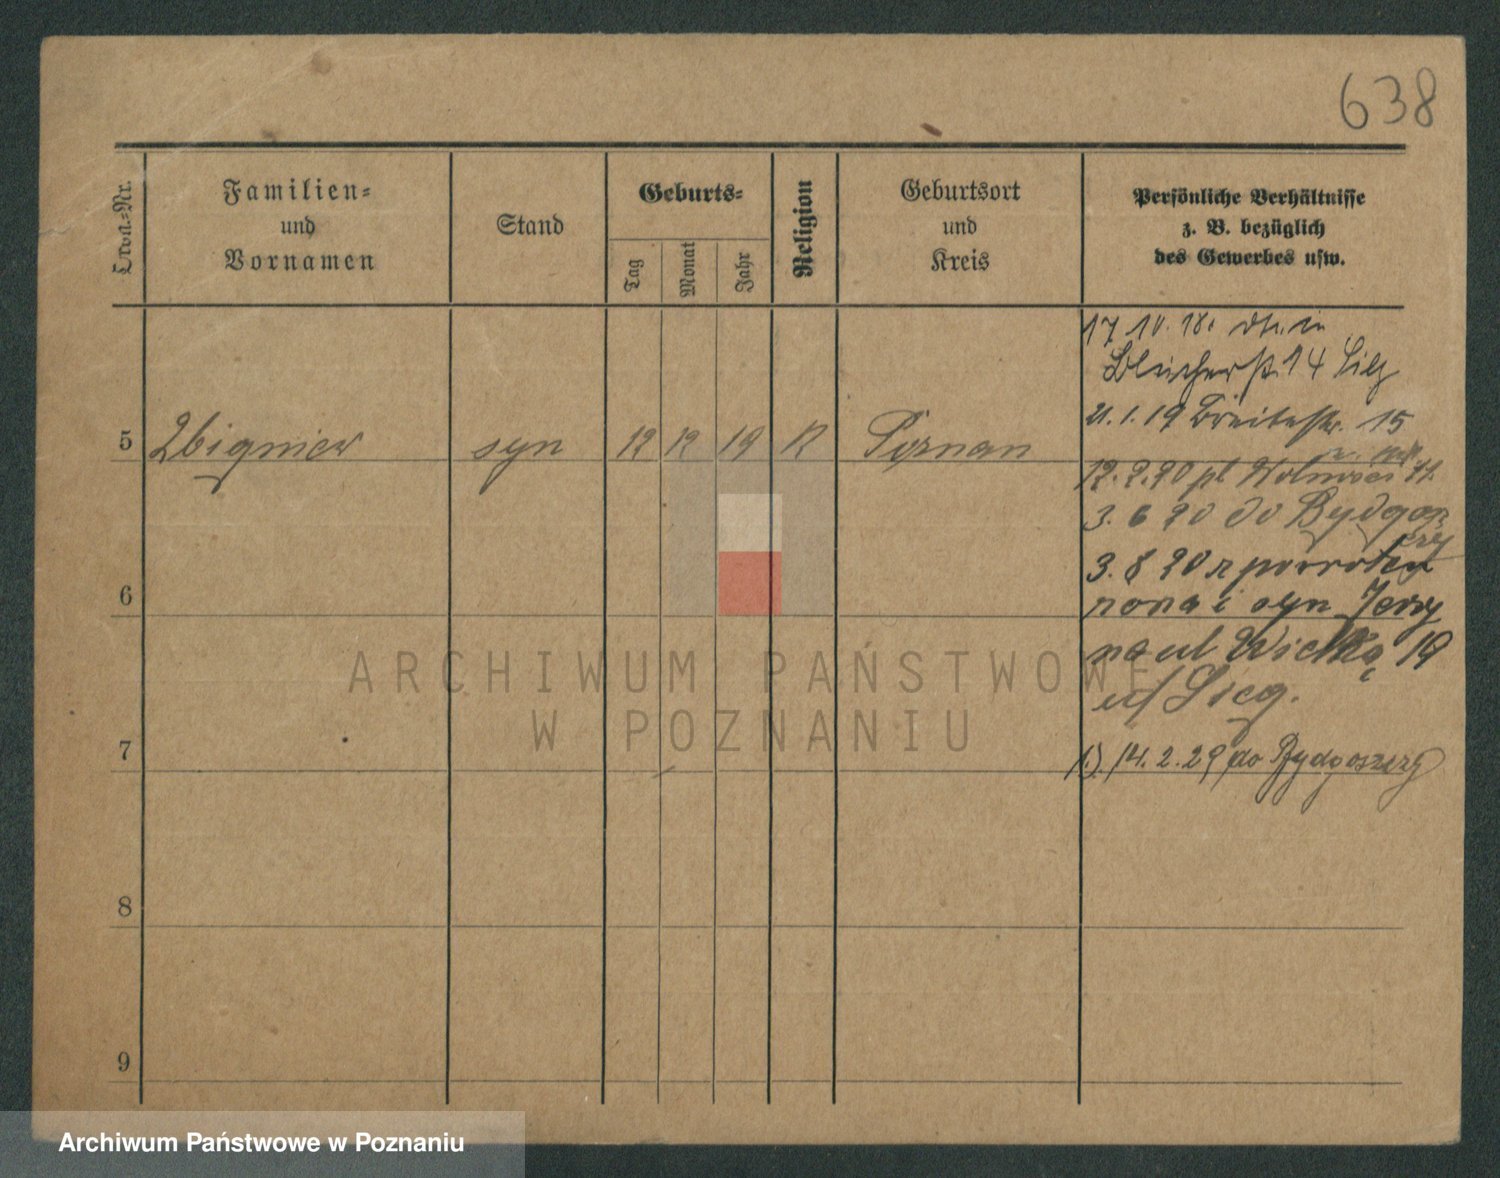 638
Lfde.-Nr.
Familien-
und
Vornamen
Stand
Geburts-
Tag
Monat
Jahr
Religion
Geburtsort
und
Kreis
Persönliche Verhältnisse
z. B. bezüglich
des Gewerbes usw.
17 10. 18.
Blücherstr. 14
21. 1. 19 Breitestr. 15
5 Zbigniew syn 12 12 19 R Poznan
12. 2. 20 pl Wolności 11.
3. 6 20 do Bydgosz
czy
3. 8 20 z powrotem
żona i syn Jerzy
na ul Wielką 19
6
7
1.). 14. 2. 29 do Bydgoszczy
8
9
ARCHIWUM PAŃSTWOWE
W POZNANIU
Archiwum Państwowe w Poznaniu